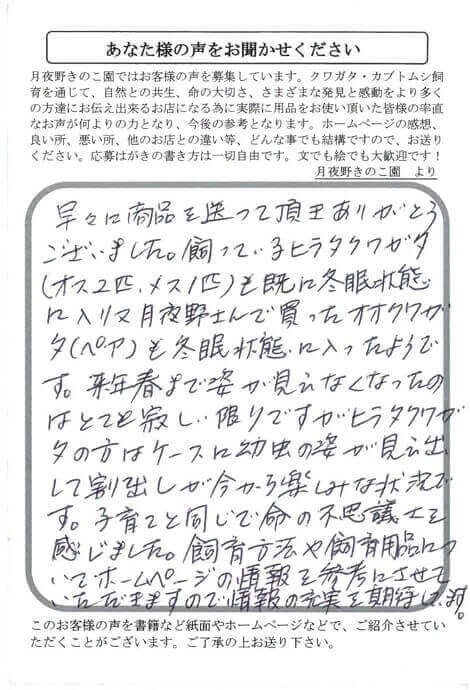 あなた様の声をお聞かせください
月夜野きのこ園ではお客様の声を募集しています。クワガタ・カブトムシ飼
育を通じて、自然との共生、命の大切さ、さまざまな発見と感動をより多く
の方達にお伝え出来るお店になる為に実際に用品をお使い頂いた皆様の率直
なお声が何よりの力となり、今後の参考となります。ホームページの感想、
良い所、悪い所、他のお店との違い等、どんな事でも結構ですので、お送り
ください。応募はがきの書き方は一切自由です。文でも絵でも大歓迎です！
月夜野きのこ園　より
早々に商品を送って頂きありがとう
ございました。飼っているヒラタクワガタ
(オス2匹、メス1匹)も既に冬眠状態
に入り又月夜野さんで買ったオオクワガ
タ(ペア)も冬眠状態に入ったようで
す。来年春まで姿が見えなくなったの
はとても寂しい限りですがヒラタクワガ
タの方はケースに幼虫の姿が見え出
して割出しが今から楽しみな状況で
す。子育てと同じで命の不思議さを
感じました。飼育方法や飼育用品につ
いてホームページの情報を参考にさせて
いただきますので情報の充実を期待します。
このお客様の声を書籍など紙面やホームページなどで、ご紹介させてい
ただくことがございます。ご了承の上お送り下さい。